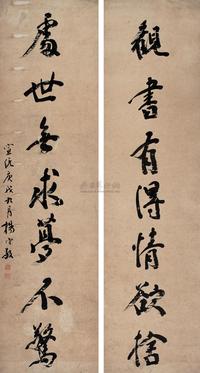 觀書有得情欲舍
處世無求夢不驚
宣統庚戌九月楊守敬